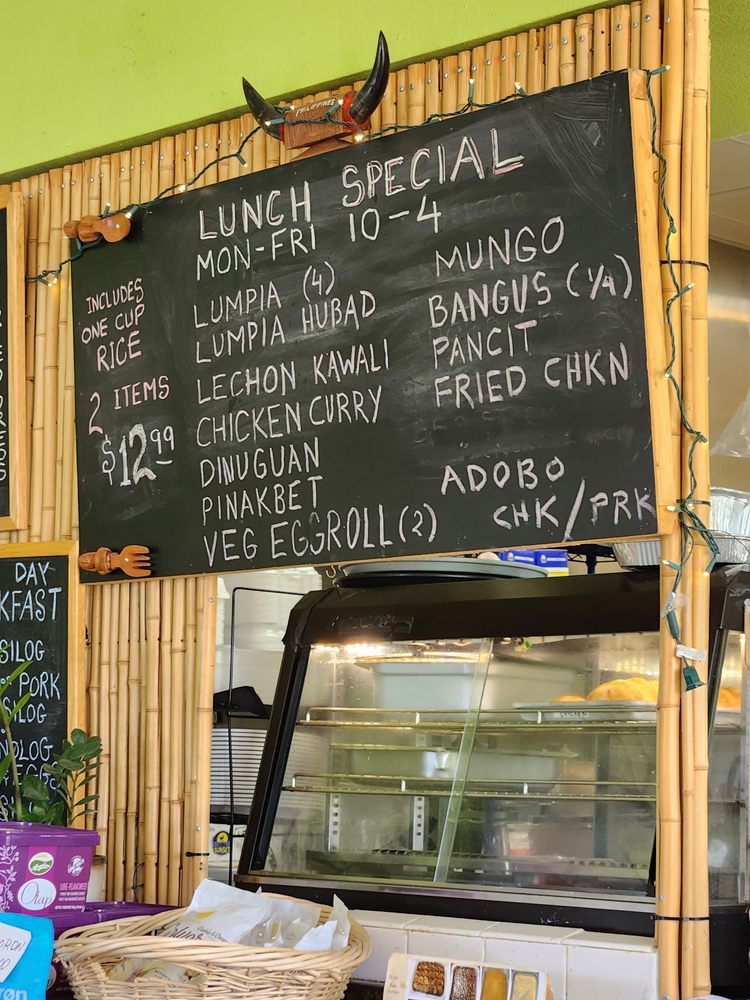 PHILIPPINES
LUNCH SPECIAL
MON-FRI 10-4
INCLUDES
ONE CUP
RICE
2 ITEMS
$12.99
LUMPIA (4)
LUMPIA HUBAD
LECHON KAWALI
CHICKEN CURRY
DINUGUAN
PINAKBET
VEG EGGROLL (2)
MUNGO
BANGUS (1/4)
PANCIT
FRIED CHKN
ADOBO
CHK/PRK
DAY
KFAST
SILOG
PORK
SILOG
Otap
UBE-FLAVORED